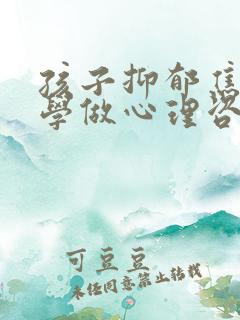 孩子抑郁
學做心理咨
可豆豆
未经同意禁止转载